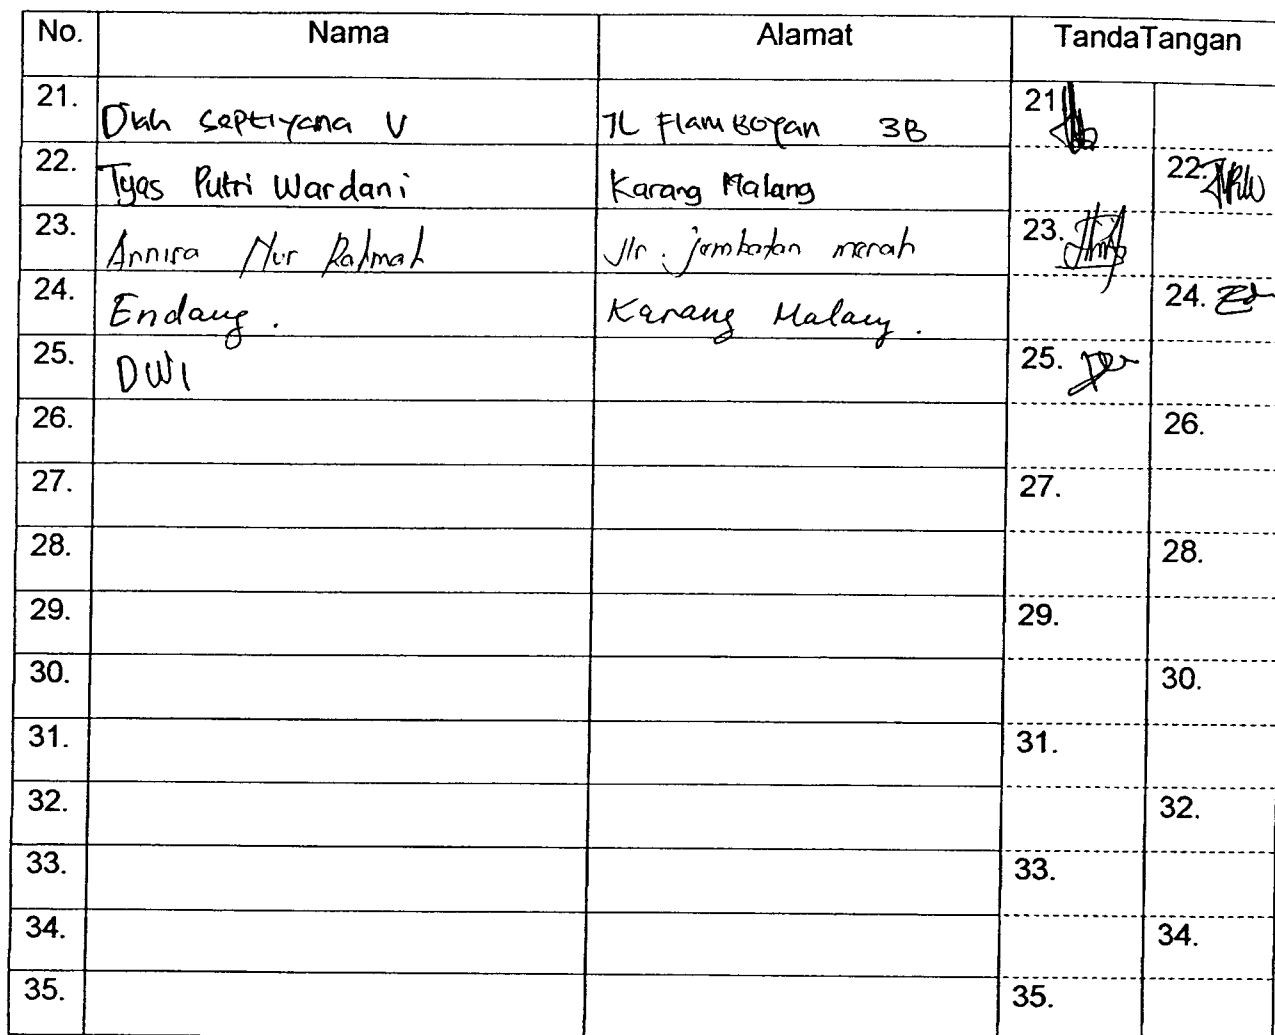 No. Nama Alamat TandaTangan
21. Diah Septiyana V JL Flamboyan 3B 21
22. Tyas Putri Wardani Karang Malang 22.
23. Annisa Nur Rahmah Jln. jembatan merah 23.
24. Endang. Karang Malang. 24.
25. DWI 25.
26. 26.
27. 27.
28. 28.
29. 29.
30. 30.
31. 31.
32. 32.
33. 33.
34. 34.
35. 35.